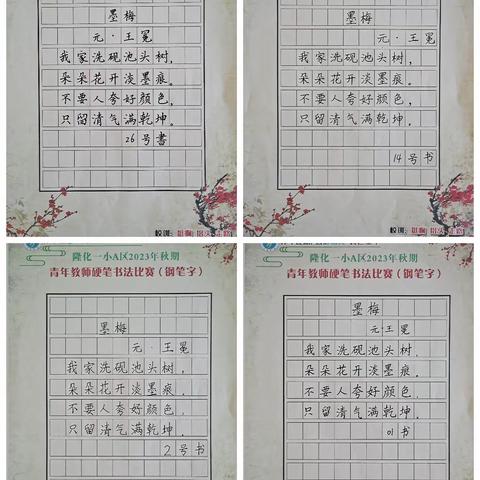 墨梅
元·王冕
我家洗砚池头树,
朵朵花开淡墨痕。
不要人夸好颜色,
只留清气满乾坤。
26号書
校训:挺胸 抬头 走路
墨梅
元·王冕
我家洗砚池头树,
朵朵花开淡墨痕。
不要人夸好颜色,
只留清气满乾坤。
14号书
校训:挺胸 抬头 走路
隆化一小A区2023年秋期
青年教师硬笔书法比赛(钢笔字)
墨梅
元·王冕
我家洗砚池头树,
朵朵花开淡墨痕.
不要人夸好颜色.
只留清气满乾坤.
2号书
隆化一小A区2023年秋期
青年教师硬笔书法比赛(钢笔字)
墨梅
元·王冕
我家洗砚池头树.
朵朵花开淡墨痕.
不要人夸好颜色.
只留清气满乾坤.
01书